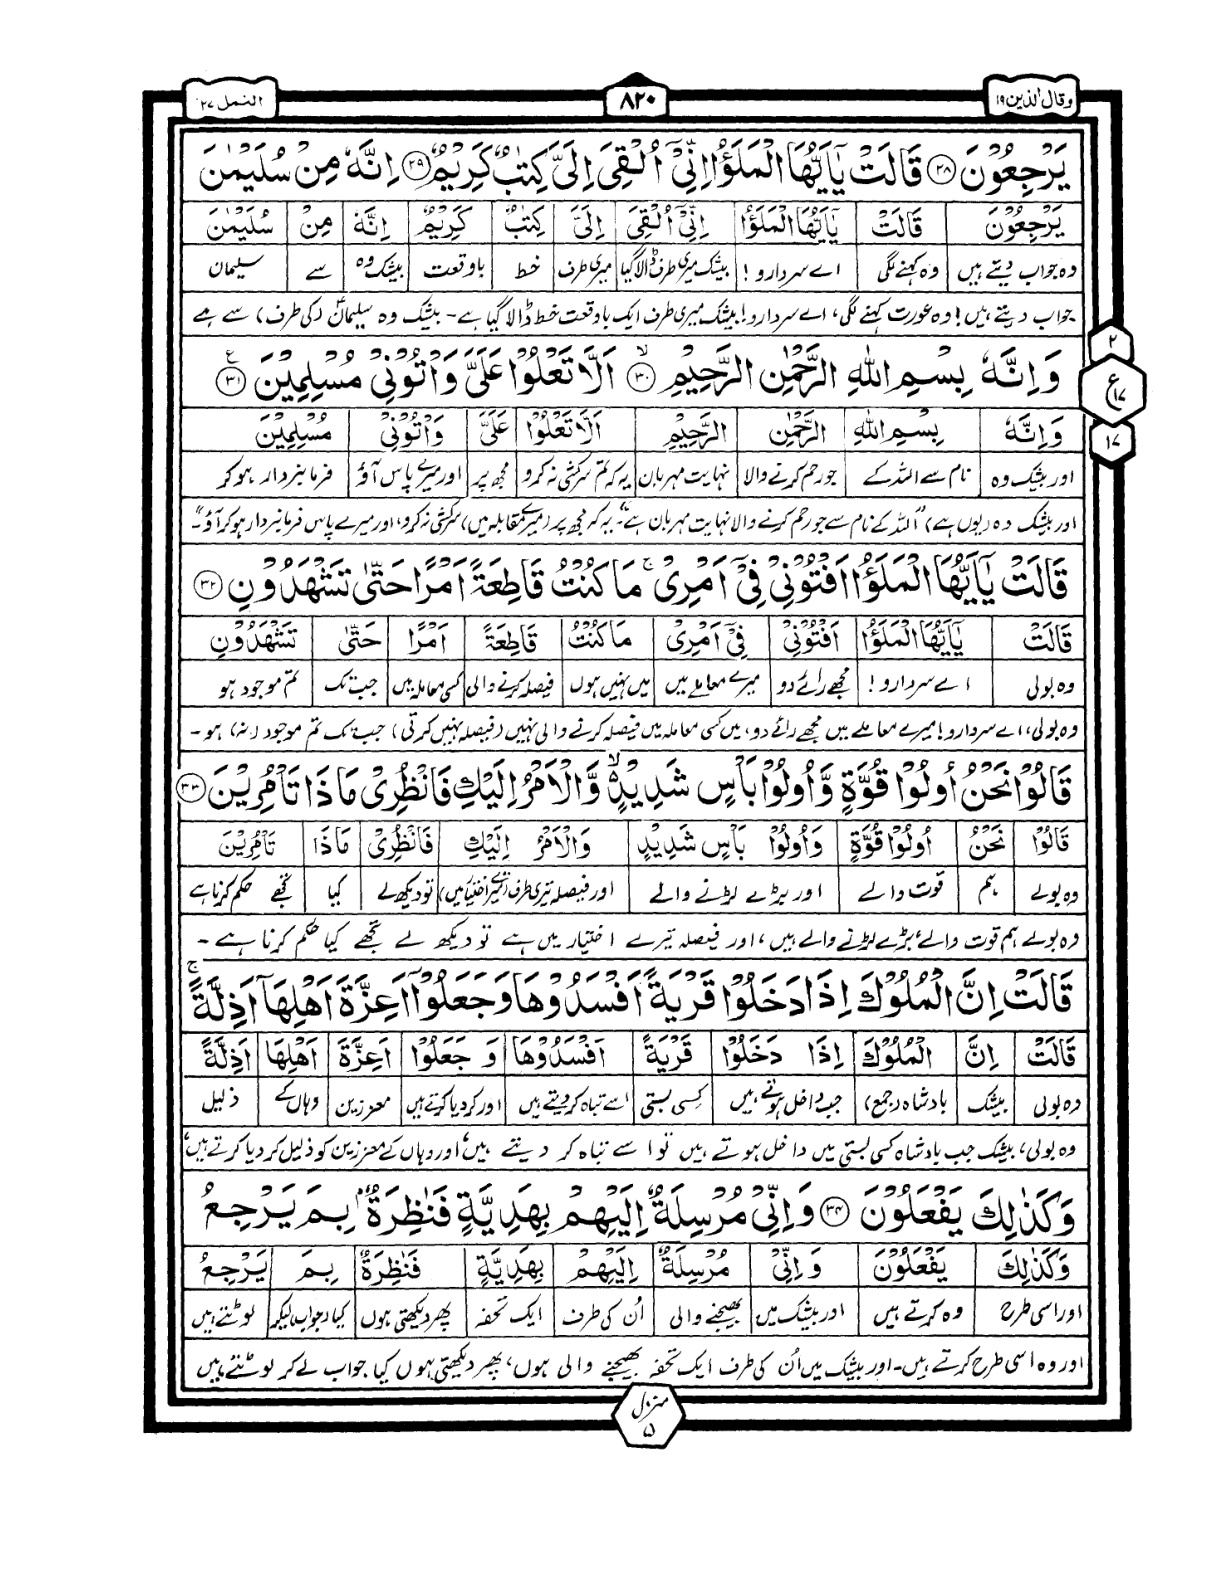 وقال الذین ۱۹
۸۲۰
النمل ۲۷
يَرْجِعُوْنَ ۲۸ قَالَتْ يٰۤاَيُّهَا الْمَلَؤُا اِنِّيْۤ اُلْقِيَ اِلَيَّ كِتٰبٌ كَرِيْمٌ ۲۹ اِنَّهٗ مِنْ سُلَيْمٰنَ
يَرْجِعُوْنَ قَالَتْ يٰۤاَيُّهَا الْمَلَؤُا اِنِّيْۤ اُلْقِيَ اِلَيَّ كِتٰبٌ كَرِيْمٌ اِنَّهٗ مِنْ سُلَيْمٰنَ
وہ جواب دیتے ہیں وہ کہنے لگی اے سردارو! بیشک میری طرف ڈالا گیا میری طرف خط باوقعت بیشک وہ سے سلیمان
جواب دیتے ہیں! وہ عورت کہنے لگی، اے سردارو! بیشک میری طرف ایک باوقعت خط ڈالا گیا ہے۔ بیشک وہ سلیمانؑ (کی طرف) سے ہے
وَاِنَّهٗ بِسْمِ اللّٰهِ الرَّحْمٰنِ الرَّحِيْمِ ۙ ۳۰ اَلَّا تَعْلُوْا عَلَيَّ وَاْتُوْنِيْ مُسْلِمِيْنَ ع ۳۱
وَاِنَّهٗ بِسْمِ اللّٰهِ الرَّحْمٰنِ الرَّحِيْمِ اَلَّا تَعْلُوْا عَلَيَّ وَاْتُوْنِيْ مُسْلِمِيْنَ
اور بیشک وہ نام سے اللہ کے جو رحم کرنے والا نہایت مہربان یہ کہ تم سرکشی نہ کرو مجھ پر اور میرے پاس آؤ فرمانبردار ہو کر
اور بیشک وہ (یوں ہے) "اللہ کے نام سے جو رحم کرنے والا نہایت مہربان ہے"۔ یہ کہ مجھ پر (میرے مقابلہ میں) سرکشی نہ کرو، اور میرے پاس فرمانبردار ہو کر آؤ"۔
۲
ع ۱۷
۱۷
قَالَتْ يٰۤاَيُّهَا الْمَلَؤُا اَفْتُوْنِيْ فِيْۤ اَمْرِيْ ۚ مَا كُنْتُ قَاطِعَةً اَمْرًا حَتّٰى تَشْهَدُوْنِ ۳۲
قَالَتْ يٰۤاَيُّهَا الْمَلَؤُا اَفْتُوْنِيْ فِيْۤ اَمْرِيْ مَا كُنْتُ قَاطِعَةً اَمْرًا حَتّٰى تَشْهَدُوْنِ
وہ بولی اے سردارو! مجھے رائے دو میرے معاملے میں میں نہیں ہوں فیصلہ کرنے والی کسی معاملہ میں جب تک تم موجود ہو
وہ بولی، اے سردارو! میرے معاملے میں مجھے رائے دو، میں کسی معاملہ میں فیصلہ کرنے والی نہیں (فیصلہ نہیں کرتی) جب تک تم موجود (نہ) ہو۔
قَالُوْا نَحْنُ اُولُوْا قُوَّةٍ وَّاُولُوْا بَاْسٍ شَدِيْدٍ ۙ وَّالْاَمْرُ اِلَيْكِ فَانْظُرِيْ مَاذَا تَاْمُرِيْنَ ۳۳
قَالُوْا نَحْنُ اُولُوْا قُوَّةٍ وَاُولُوْا بَاْسٍ شَدِيْدٍ وَالْاَمْرُ اِلَيْكِ فَانْظُرِيْ مَاذَا تَاْمُرِيْنَ
وہ بولے ہم قوت والے اور بڑے لڑنے والے اور فیصلہ تیری طرف (تیرے اختیار میں) تو دیکھ لے کیا تجھے حکم کرنا ہے
وہ بولے ہم قوت والے، بڑے لڑنے والے ہیں، اور فیصلہ تیرے اختیار میں ہے تو دیکھ لے تجھے کیا حکم کرنا ہے۔
قَالَتْ اِنَّ الْمُلُوْكَ اِذَا دَخَلُوْا قَرْيَةً اَفْسَدُوْهَا وَجَعَلُوْۤا اَعِزَّةَ اَهْلِهَاۤ اَذِلَّةً ۚ
قَالَتْ اِنَّ الْمُلُوْكَ اِذَا دَخَلُوْا قَرْيَةً اَفْسَدُوْهَا وَ جَعَلُوْۤا اَعِزَّةَ اَهْلِهَاۤ اَذِلَّةً
وہ بولی بیشک بادشاہ (جمع) جب داخل ہوتے ہیں کسی بستی اسے تباہ کر دیتے ہیں اور کر دیا کرتے ہیں معززین وہاں کے ذلیل
وہ بولی، بیشک جب بادشاہ کسی بستی میں داخل ہوتے ہیں تو اسے تباہ کر دیتے ہیں، اور وہاں کے معززین کو ذلیل کر دیا کرتے ہیں،
وَكَذٰلِكَ يَفْعَلُوْنَ ۳۴ وَاِنِّيْ مُرْسِلَةٌ اِلَيْهِمْ بِهَدِيَّةٍ فَنٰظِرَةٌۢ بِمَ يَرْجِعُ
وَكَذٰلِكَ يَفْعَلُوْنَ وَاِنِّيْ مُرْسِلَةٌ اِلَيْهِمْ بِهَدِيَّةٍ فَنٰظِرَةٌ بِمَ يَرْجِعُ
اور اسی طرح وہ کرتے ہیں اور بیشک میں بھیجنے والی اُن کی طرف ایک تحفہ پھر دیکھتی ہوں کیا (جواب) لیکر لوٹتے ہیں
اور وہ اسی طرح کرتے ہیں۔ اور بیشک میں اُن کی طرف ایک تحفہ بھیجنے والی ہوں، پھر دیکھتی ہوں کیا جواب لے کر لوٹتے ہیں
منزل ۵